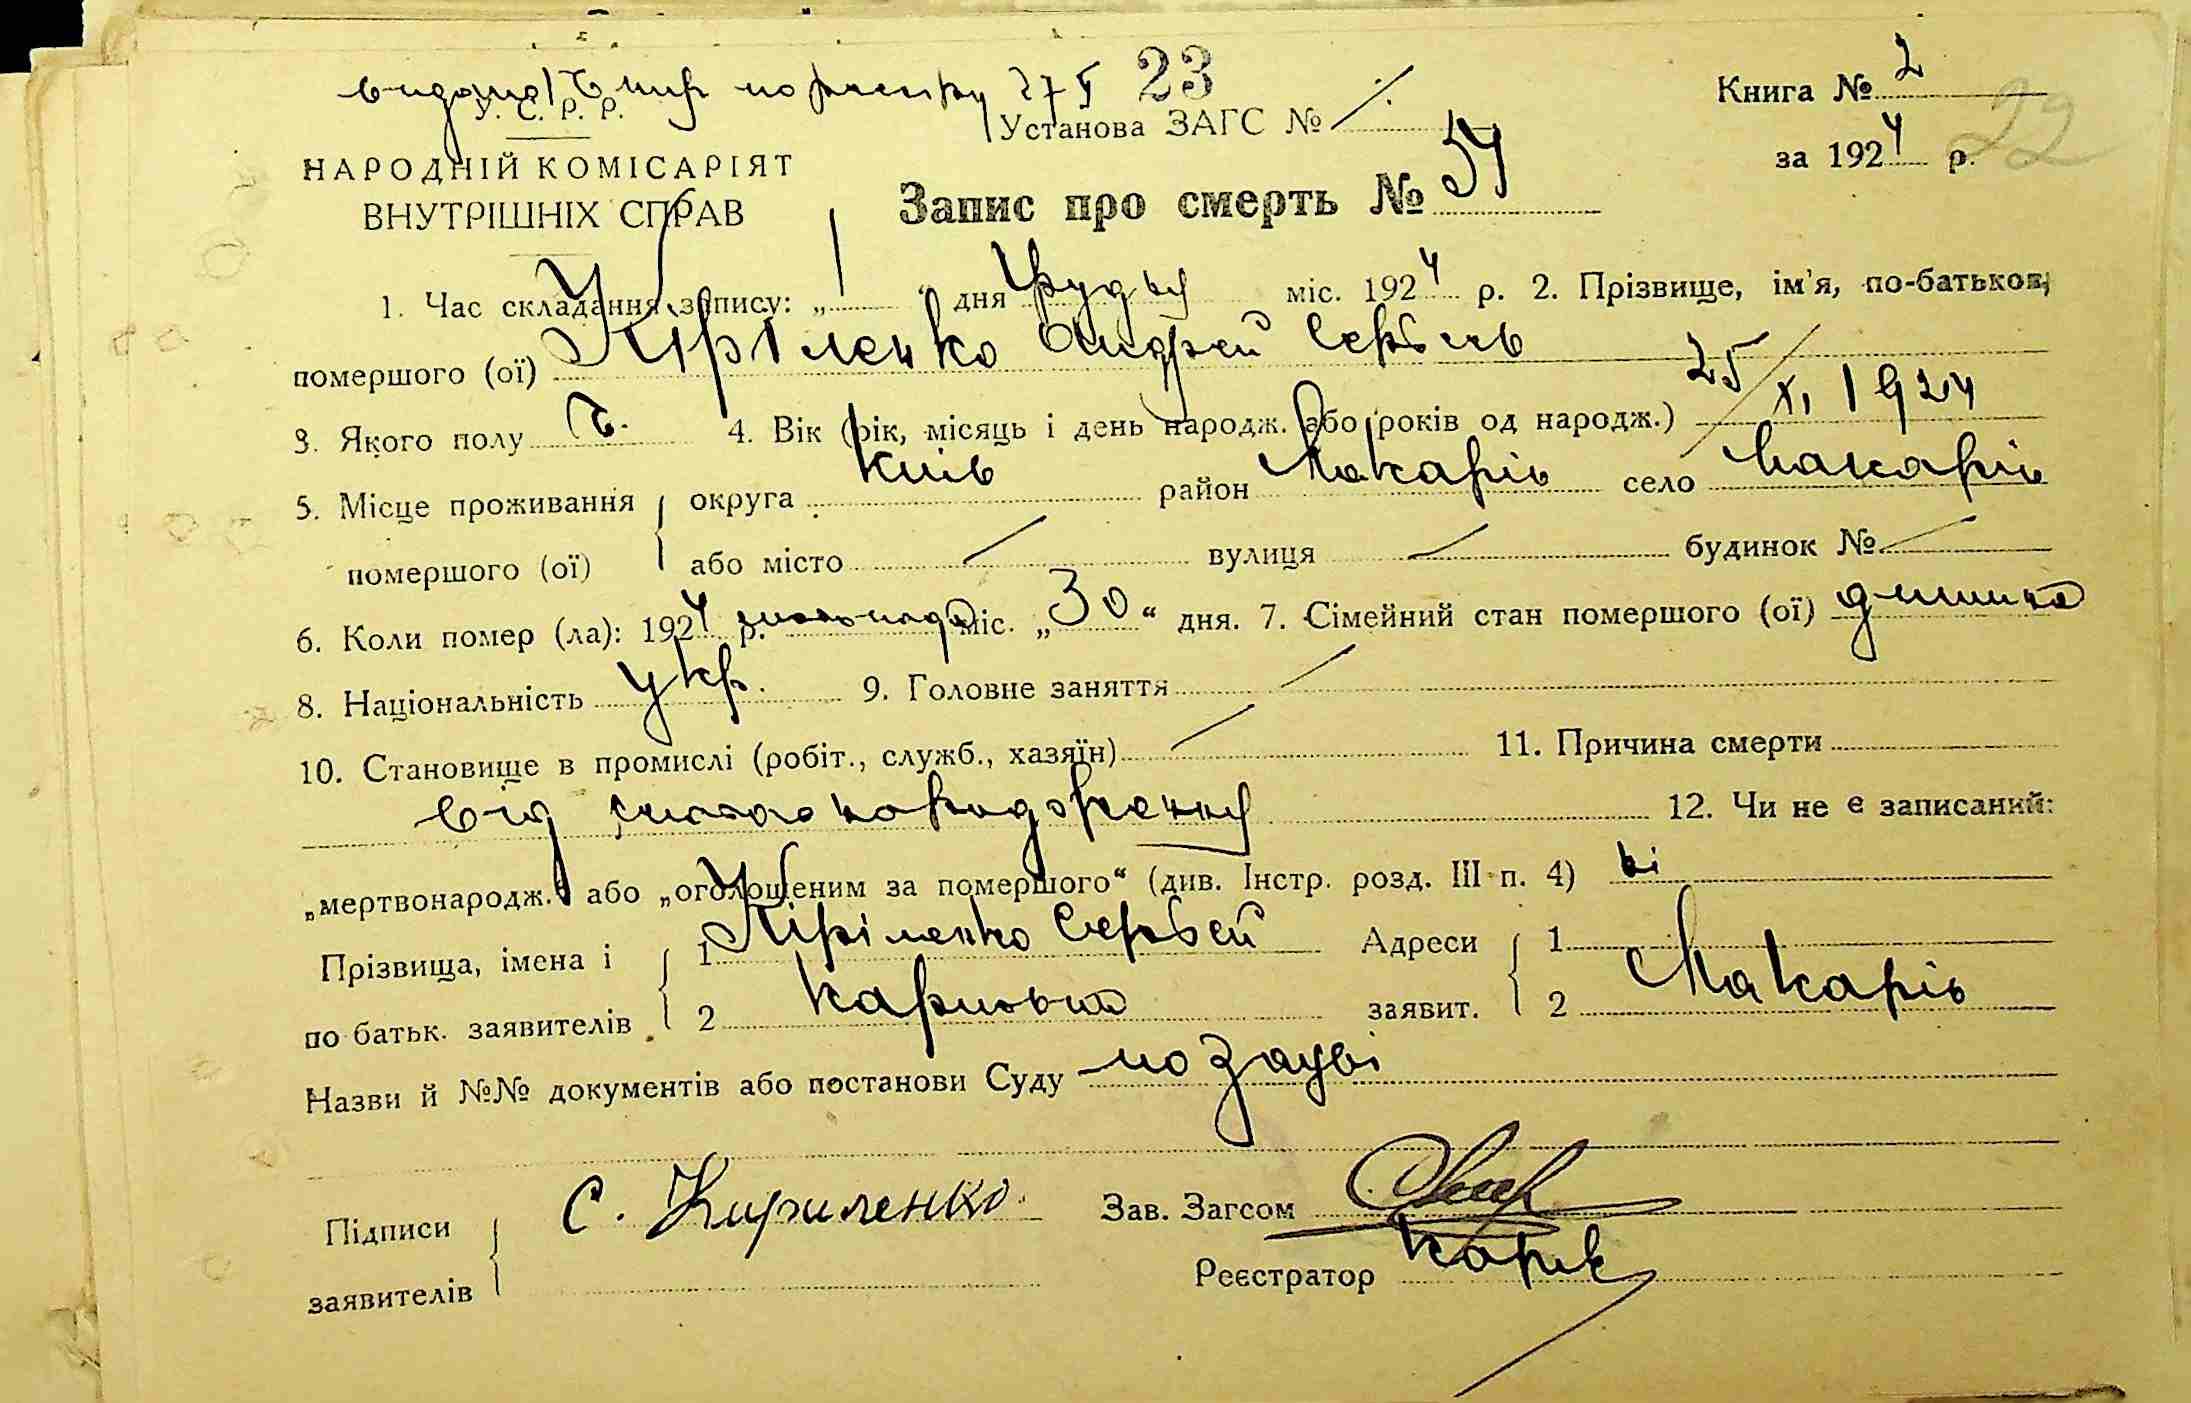 23
Книга № 2
У. С. Р. Р.
Установа ЗАГС № /
22
НАРОДНІЙ КОМІСАРІЯТ
за 1924 р.
ВНУТРІШНІХ СПРАВ
Запис про смерть № 54
1. Час складання запису: „1“ дня Грудня міс. 1924 р. 2. Прізвище, ім'я, по-батькові
помершого (ої) Кіріленко Андрей
3. Якого полу ч. 4. Вік (рік, місяць і день народж. або років од народж.) 25/XI 1924
5. Місце проживання округа Київ район Макарів село Макарів
помершого (ої) або місто / вулиця / будинок № /
6. Коли помер (ла): 1924 р. листопада міс. „30“ дня. 7. Сімейний стан помершого (ої) дитина
8. Національність укр. 9. Головне заняття /
10. Становище в промислі (робіт., служб., хазяїн) / 11. Причина смерти
від 12. Чи не є записаний:
„мертвонародж.“ або „оголошеним за помершого“ (див. Інстр. розд. III п. 4) ні
Прізвища, імена і 1 Кіріленко Сергей Адреси 1
по батьк. заявителів 2 заявит. 2 Макарів
Назви й №№ документів або постанови Суду по заяві
Підписи С. Кириленко Зав. Загсом
заявителів Реєстратор